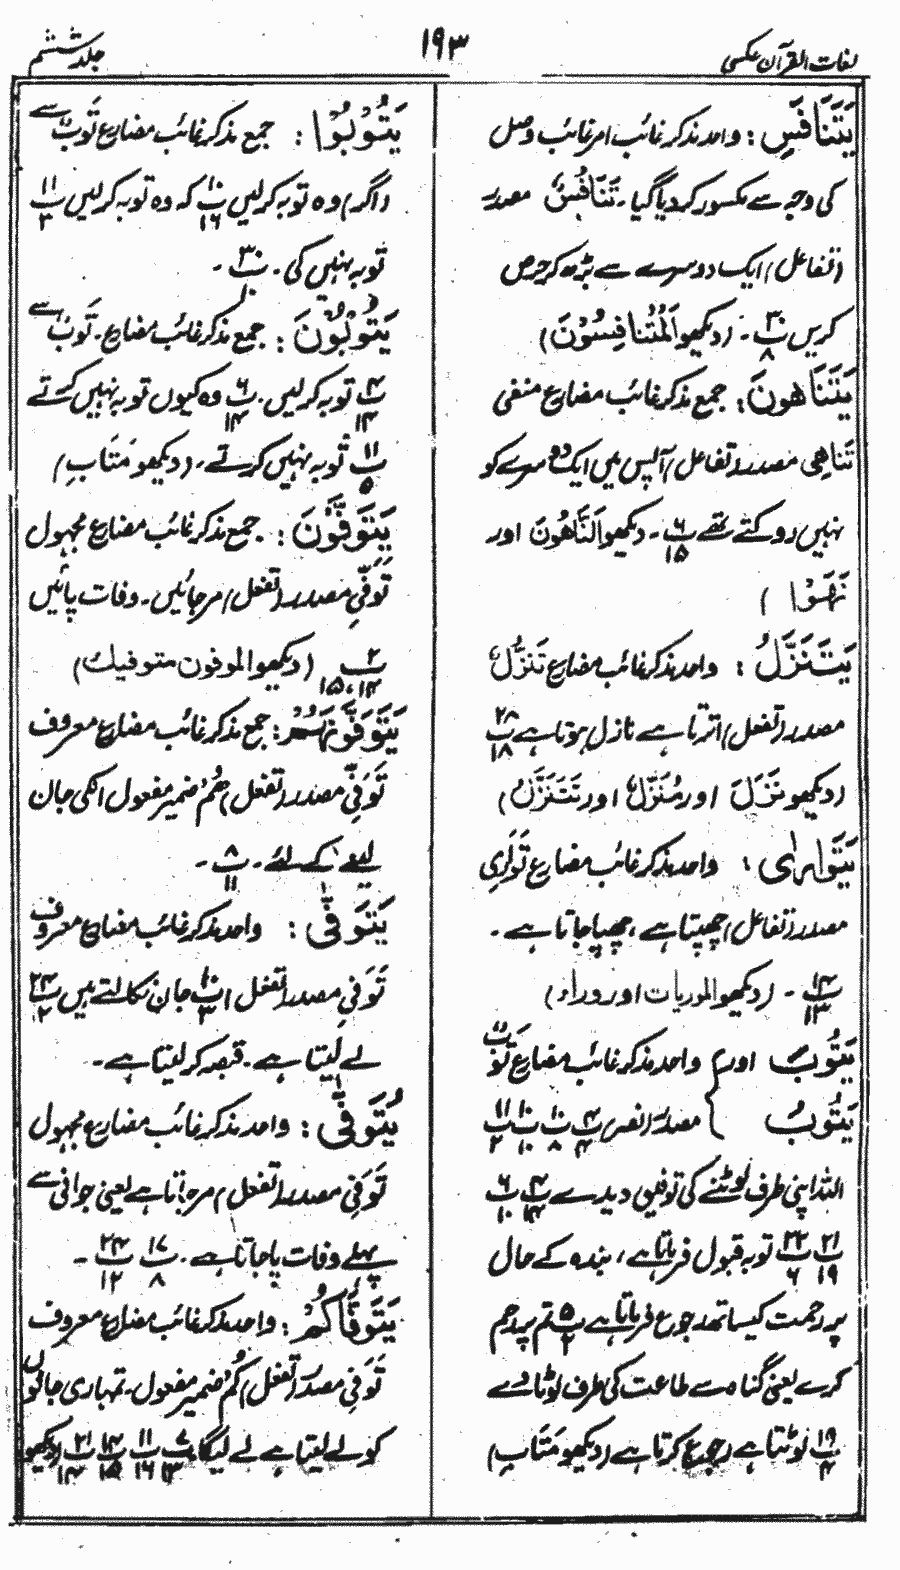 لغات القرآن عکسی
۱۹۳
جلد ششم
یَتَنَافَسِ : واحد مذکر غائب امر غائب وصل
کی وجہ سے مکسور کر دیا گیا۔ تَنَافُسٌ مصدر
(تفاعل) ایک دوسرے سے بڑھ کر حرص
کریں ب ۳۰ ۸ ۔ (دیکھو اَلْمُتَنَافِسُوْنَ)
یَتَنَاهَونَ : جمع مذکر غائب مضارع منفی
تَنَاهِی مصدر (تفاعل) آپس میں ایک دوسرے کو
نہیں روکتے تھے ب ۶ ۱۵ ۔ دیکھو اَلنَّاهُونَ اور
نَهَوْا )
یَتَنَزَّلُ : واحد مذکر غائب مضارع تَنَزُّلٌ
مصدر (تفعل) اترتا ہے نازل ہوتا ہے ب ۲۸ ۱۸
(دیکھو نَزَلَ اور مُنَزِّلٌ اور تَتَنَزَّلُ)
یَتَوَارٰی : واحد مذکر غائب مضارع تَوَارِی
مصدر (تفاعل) چھپتا ہے، چھپا جاتا ہے۔
ب ۱۴ ۱۳ ۔ (دیکھو الموریات اور وراء)
یَتُوْبَ اور واحد مذکر غائب مضارع تَوْبٌ
یَتُوْبُ مصدر (نصر) ب ۴ ۴ ب ۱۰ ۸ ب ۱۰ ۱۰ ب ۱۱ ۲
اللہ اپنی طرف لوٹنے کی توفیق دیدے ب ۴ ۱۴ ب ۶ ۱۰
ب ۲۱ ۱۹ ب ۲۲ ۶ توبہ قبول فرماتا ہے، بندہ کے حال
پر رحمت کیساتھ رجوع فرماتا ہے ب ۵ ۲ تم پر رحم
کرے یعنی گناہ سے طاعت کی طرف لوٹا دے
ب ۱۹ ۴ لوٹتا ہے رجوع کرتا ہے (دیکھو مَتَابِ)
یَتُوْبُوْا : جمع مذکر غائب مضارع تَوْبٌ سے
(اگر) وہ توبہ کر لیں ب ۱۰ ۱۶ کہ وہ توبہ کر لیں ب ۱۱ ۳
توبہ نہیں کی۔ ب ۳۰ ۱۰ ۔
یَتُوْبُوْنَ : جمع مذکر غائب مضارع۔ تَوْبٌ سے
ب ۴ ۱۴ توبہ کر لیں۔ ب ۶ ۱۴ وہ کیوں توبہ نہیں کرتے
ب ۱۱ ۵ توبہ نہیں کرتے۔ (دیکھو مَتَابِ)
یُتَوَفَّوْنَ : جمع مذکر غائب مضارع مجہول
تَوَفِّی مصدر (تفعل) مر جائیں۔ وفات پائیں
ب ۲ ۱۵،۱۴ (دیکھو الموفون متوفیك)
یَتَوَفَّوْنَهُمْ : جمع مذکر غائب مضارع معروف
تَوَفِّی مصدر (تفعل) هُمْ ضمیر مفعول انکی جان
لینے کے لئے۔ ب ۸ ۱۱ ۔
یَتَوَفّٰی : واحد مذکر غائب مضارع معروف
تَوَفِّی مصدر (تفعل) ب ۱۰ ۳ جان نکالتے ہیں ب ۲۴ ۲
لے لیتا ہے۔ قبضہ کر لیتا ہے۔
یُتَوَفّٰی : واحد مذکر غائب مضارع مجہول
تَوَفِّی مصدر (تفعل) مرجاتا ہے یعنی جوانی سے
پہلے وفات پا جاتا ہے۔ ب ۱۷ ۸ ب ۲۴ ۱۲ ۔
یَتَوَفّٰاکُمْ : واحد مذکر غائب مضارع معروف
تَوَفِّی مصدر (تفعل) کُمْ ضمیر مفعول۔ تمہاری جانوں
کو لے لیتا ہے لے لیگا ب ۷ ۱۳ ب ۱۱ ۱۶ ب ۱۴ ۱۵ ب ۲۱ ۱۴ (دیکھو